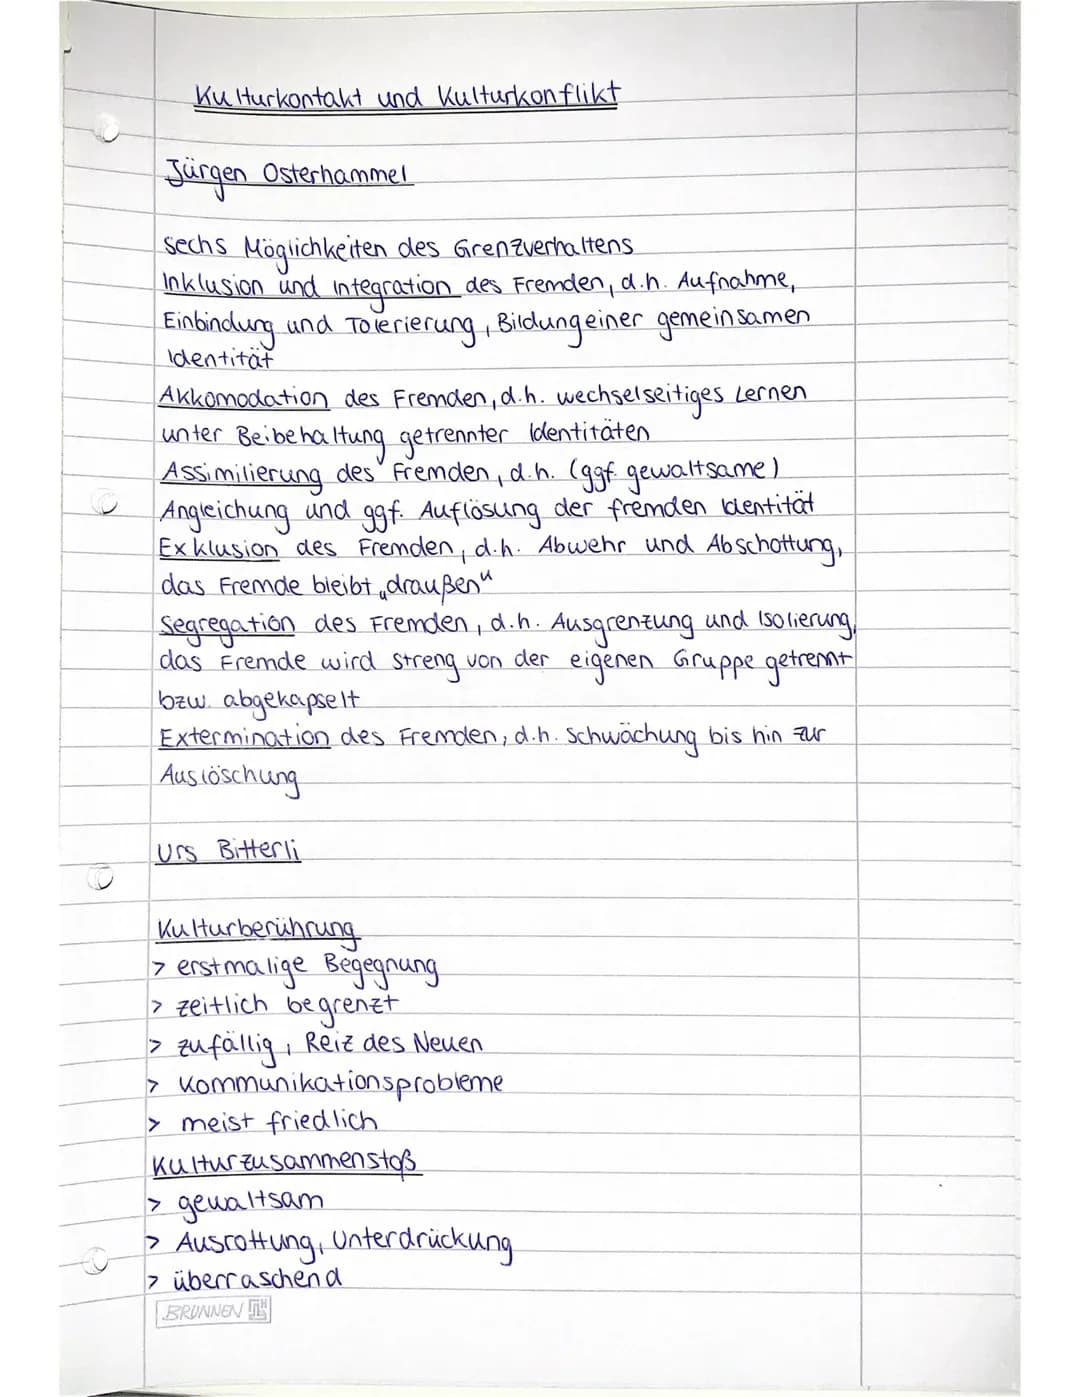 Kulturkontakt und Kulturkonflikt
Jürgen Osterhammel
sechs Möglichkeiten des Grenzverhaltens
Inklusion und Integration des Fremden, d.h. Aufnahme,
Einbindung und Tolerierung, Bildung einer gemeinsamen
Identität
Akkomodation des Fremden, d.h. wechselseitiges Lernen
unter Beibehaltung getrennter Identitäten
Assimilierung des Fremden, d.h. (ggf. gewaltsame)
Angleichung und ggf. Auflösung der fremden Identität
Exklusion des Fremden, d.h. Abwehr und Abschottung,
das Fremde bleibt „draußen“
Segregation des Fremden, d.h. Ausgrenzung und Isolierung,
das Fremde wird streng von der eigenen Gruppe getrennt
bzw. abgekapselt
Extermination des Fremden, d.h. Schwächung bis hin zur
Auslöschung
Urs Bitterli
Kulturberührung
> erstmalige Begegnung
> zeitlich begrenzt
> zufällig, Reiz des Neuen
> Kommunikationsprobleme
> meist friedlich
Kulturzusammenstoß
> gewaltsam
> Ausrottung, Unterdrückung
> überraschend
BRUNNEN